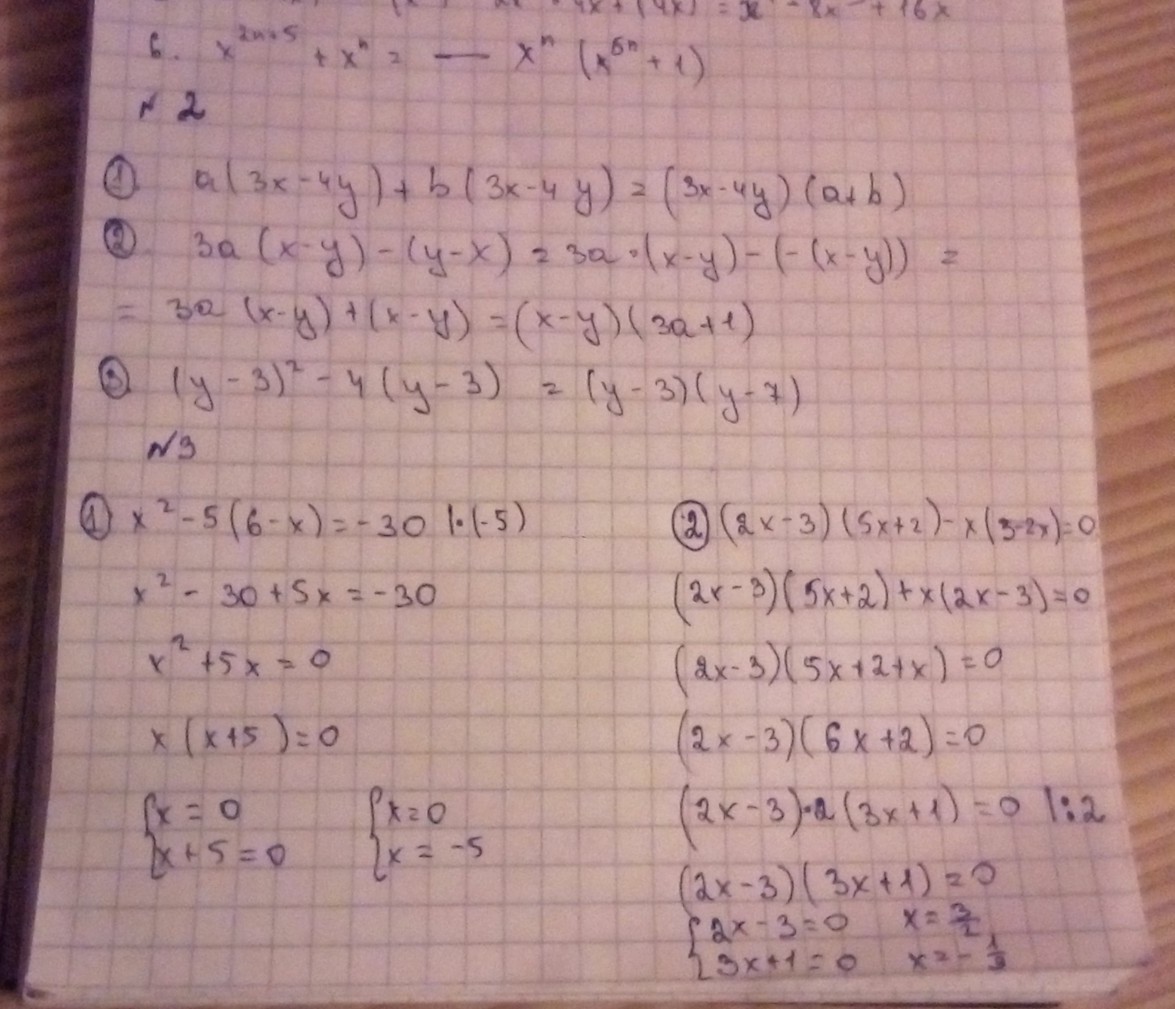 = x - 8x + 16x
6. x^{2n+5} + x^n = — x^n (x^{5n} + 1)
№ 2
① a(3x-4y)+b(3x-4y)=(3x-4y)(a+b)
② 3a(x-y)-(y-x)=3a·(x-y)-(-(x-y))=
= 3a(x-y)+(x-y)=(x-y)(3a+1)
③ (y-3)²-4(y-3)=(y-3)(y-7)
№3
① x²-5(6-x)=-30 |·(-5)
x²-30+5x=-30
x²+5x=0
x(x+5)=0
{x=0 {x=0
x+5=0 x=-5
② (2x-3)(5x+2)-x(3-2x)=0
(2x-3)(5x+2)+x(2x-3)=0
(2x-3)(5x+2+x)=0
(2x-3)(6x+2)=0
(2x-3)·2(3x+1)=0 |:2
(2x-3)(3x+1)=0
{2x-3=0 x=3/2
3x+1=0 x=-1/3